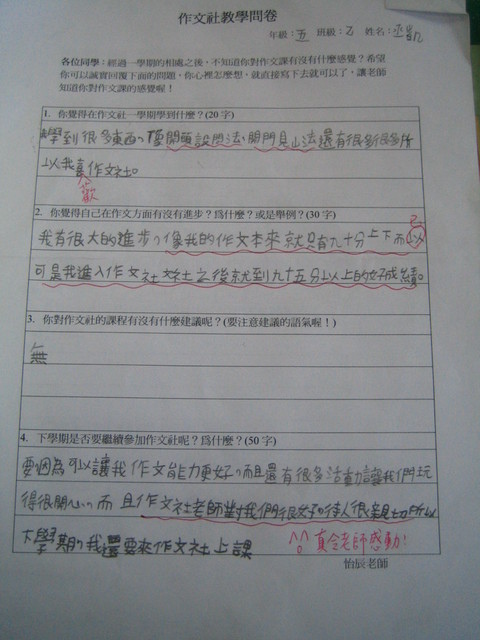 作文社教學問卷
年級：五 班級：乙 姓名：丞凱
各位同學：經過一學期的相處之後，不知道你對作文課有沒有什麼感覺？希望
你可以誠實回覆下面的問題，你心裡怎麼想，就直接寫下去就可以了，讓老師
知道你對作文課的感覺喔！
1. 你覺得在作文社一學期學到什麼？(20 字)
學到很多東西。像開頭設問法、開門見山法還有很多很多所
以我喜作文社。
歡
2. 你覺得自己在作文方面有沒有進步？為什麼？或是舉例？(30 字)
己
我有很大的進步。像我的作文本來就只有九十分上下而以
可是我進入作文社之後就到九十五分以上的好成績。
3. 你對作文社的課程有沒有什麼建議呢？(要注意建議的語氣喔！)
無
4. 下學期是否要繼續參加作文社呢？為什麼？(50 字)
要。因為可以讓我作文能力更好。而且還有很多活動讓我們玩
得很開心。而且作文社老師對我們很好待人很親切所以
下學期我還要來作文社上課
^^。真令老師感動！
怡辰老師